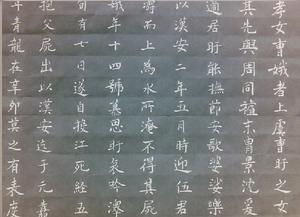 孝女曹娥者上虞曹盱之女
其先與周同祖末胄景沈爰
適居盱能撫節安歌婆娑樂
以漢安二年五月時迎伍君
濤而上為水所淹不得其屍
娥年十四號慕思盱哀吟澤
旬有七日遂自投江死經五
抱父屍出以漢安迄于元嘉
年青龍在辛卯莫之有表度